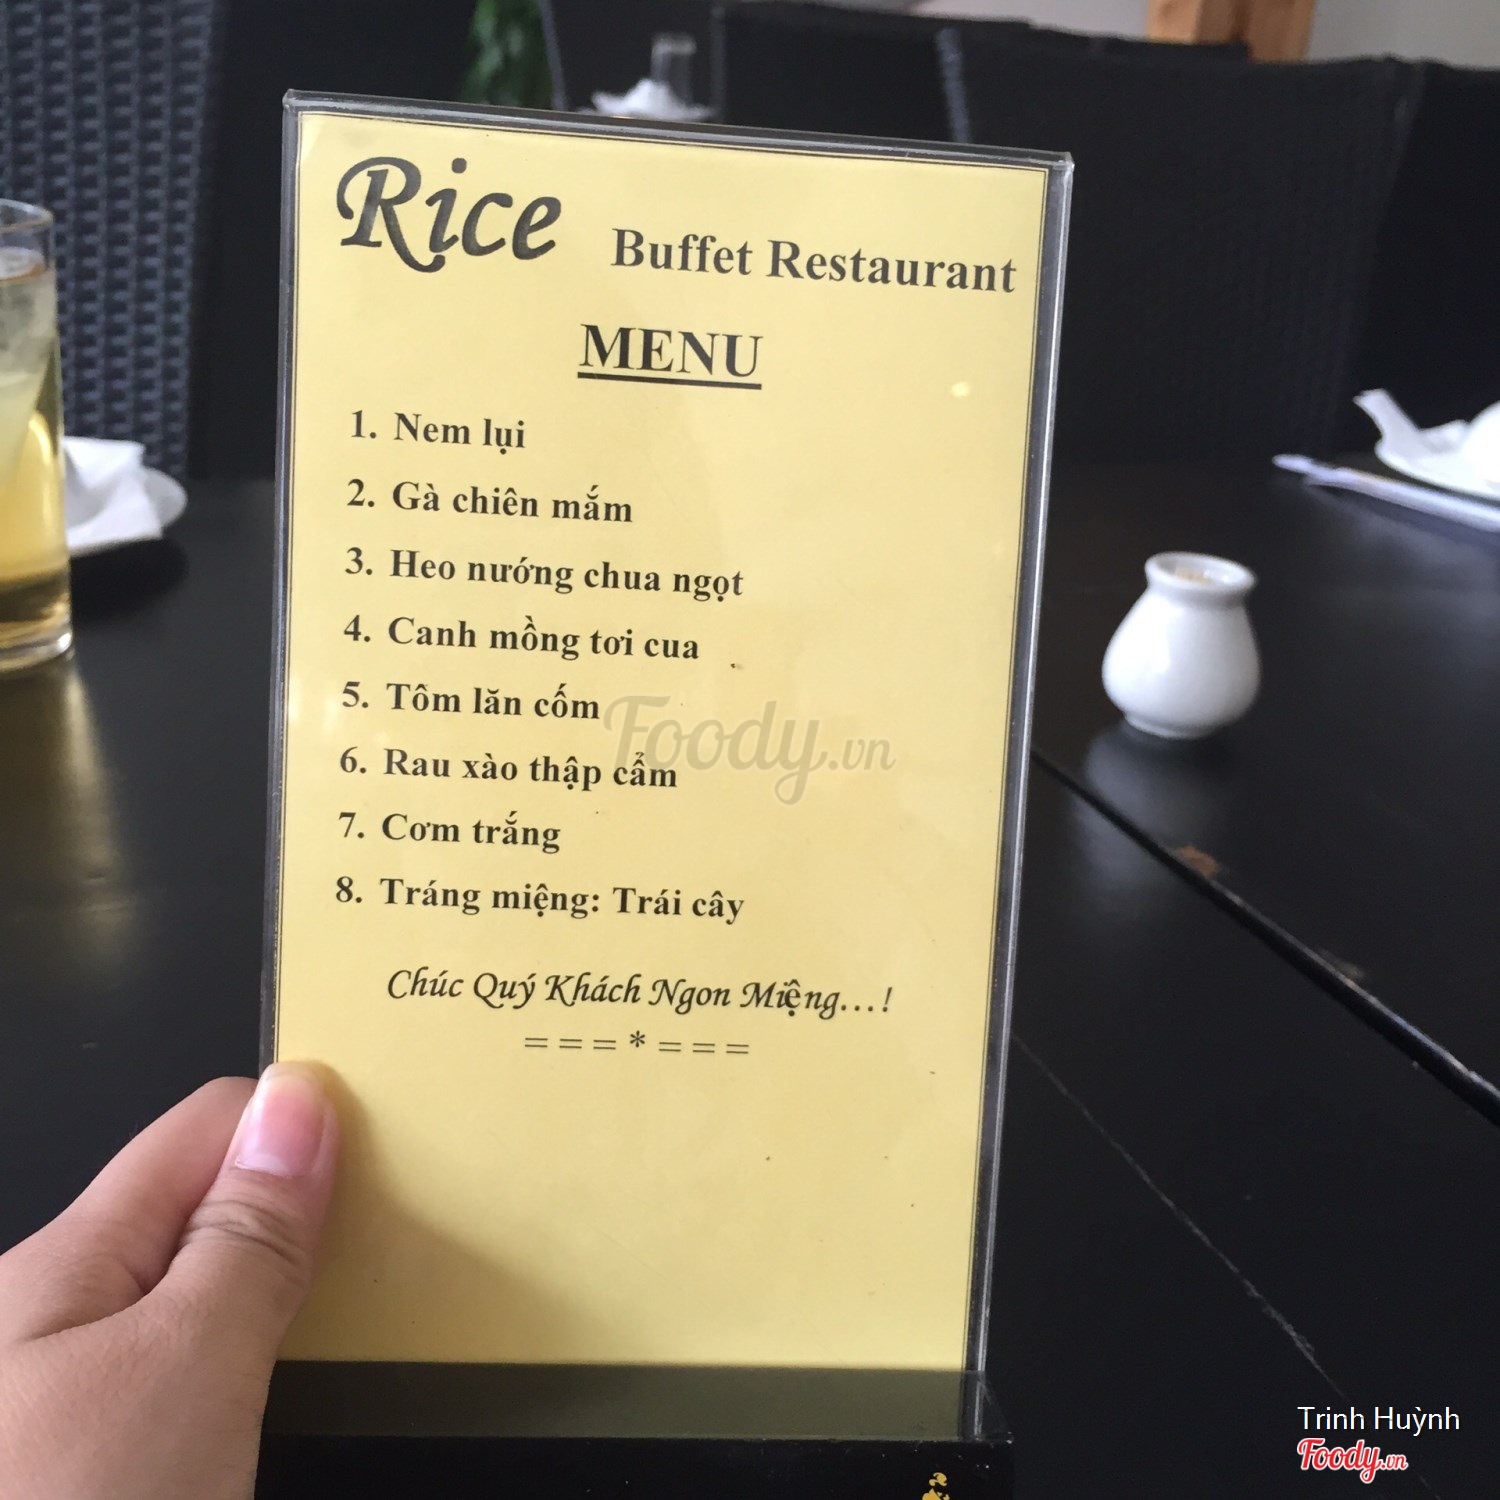 Rice Buffet Restaurant
MENU
1. Nem lụi
2. Gà chiên mắm
3. Heo nướng chua ngọt
4. Canh mồng tơi cua
5. Tôm lăn cốm
6. Rau xào thập cẩm
7. Cơm trắng
8. Tráng miệng: Trái cây
Chúc Quý Khách Ngon Miệng...!
= = = * = = =
Foody.vn
Trinh Huỳnh
Foody.vn